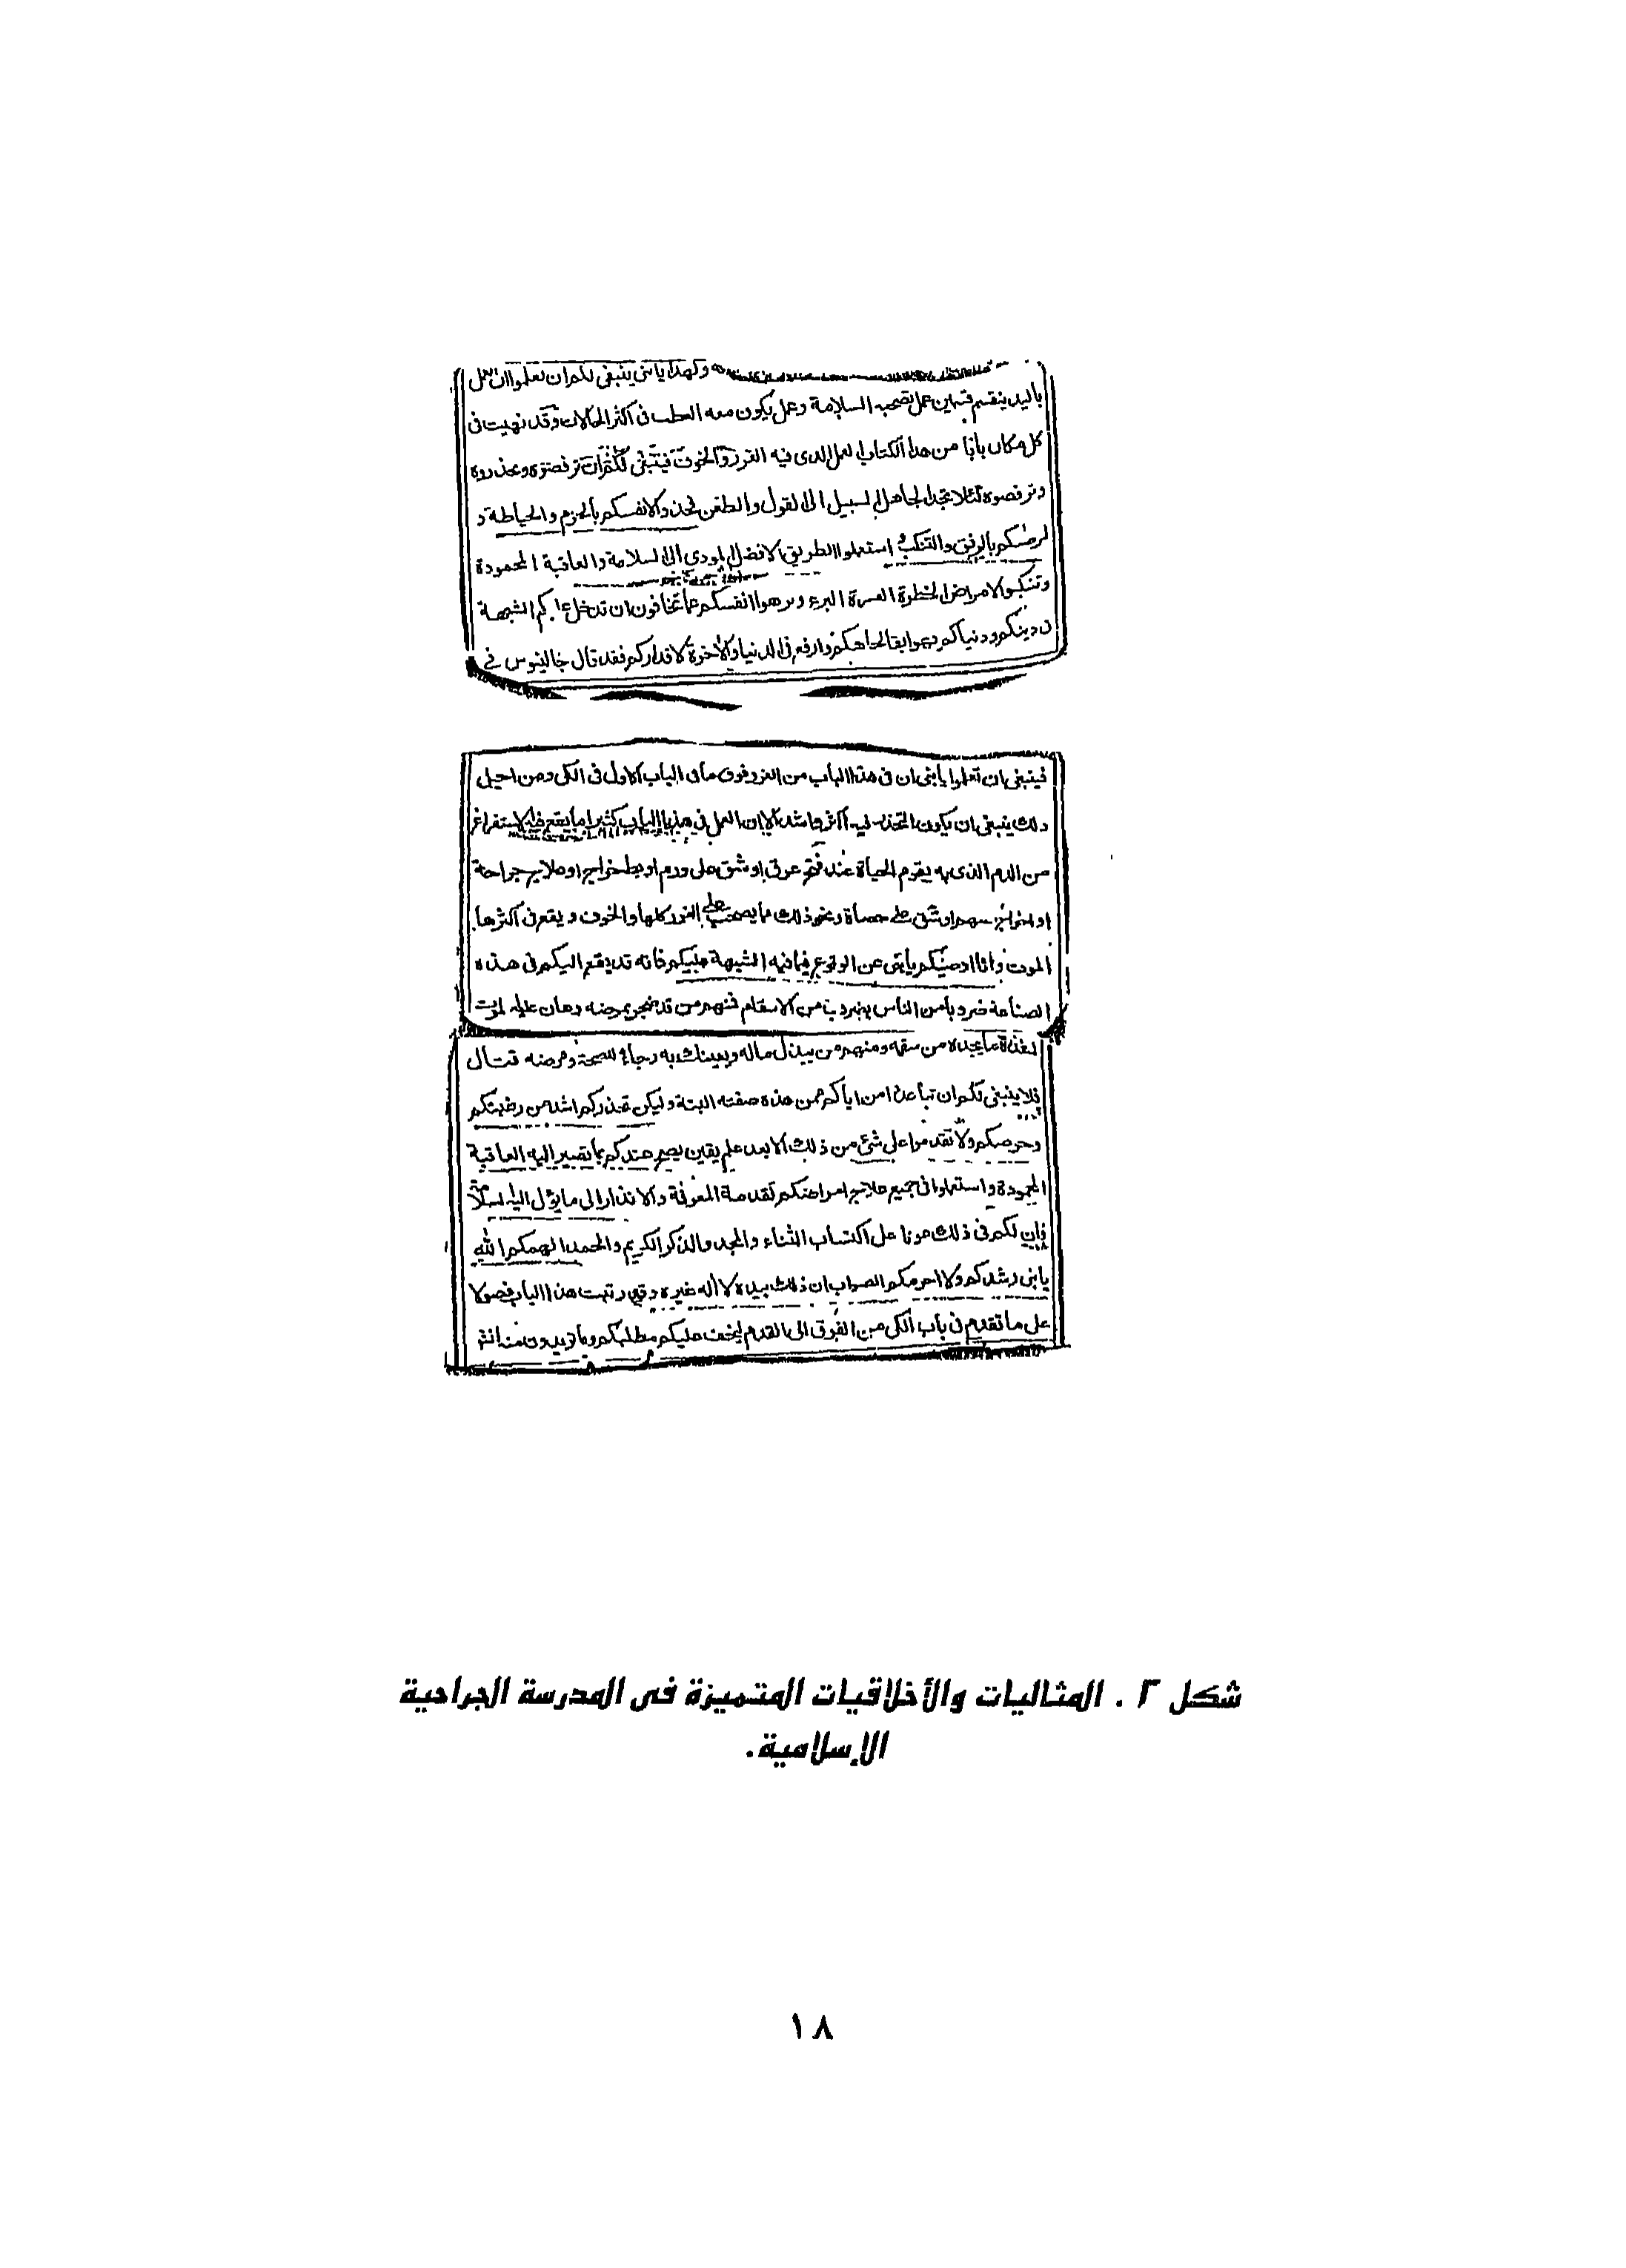 ولهذا يا بنى ينبغى لكم ان تعلموا ان العمل
باليد ينقسم قسمين عمل تصحبه السلامة وعمل يكون معه العطب فى اكثر الحالات وقد نبهت فى
كل مكان يأتى من هذا الكتاب العمل الذى فيه الغرر والخوف فينبغى لكم ان ترفضوه وتحذروه
وترفضوه لئلا يجد الجاهل السبيل الى القول والطعن فخذوا لانفسكم بالحزم والحياطة و
لمرضكم بالرفق والتنكب استعملوا الطريق الافضل المودى الى السلامة والعاقبة المحمودة
وتنكبوا الامراض الخطرة العسرة البرء ونزهوا انفسكم عما تخافون ان تدخل عليكم الشبهة
فى دينكم ودنياكم فهو ابقا لجاهكم وارفع فى الدنيا والآخرة لاقداركم فقد قال جالينوس فى
فينبغى ان تعلموا يا بنى ان فى هذا الباب من الغرر فوق ما فى الباب الاول فى الكى ومن اجل
ذلك ينبغى ان يكون التحذير فيه اكثر واشد لان العمل فى هذا الباب كثيرا ما يقع فيه الاستفراغ
من الدم الذى به يقوم الحياة عند فتح عرق او شق على ورم او بط خراج او علاج جراحة
او اخراج سهم او شق على حصاة ونحو ذلك مما يصحب كلها الغرر والخوف ويقع فى اكثرها
الموت وانا اوصيكم يا بنى عن الوقوع فيما فيه الشبهة عليكم فانه قد يقع اليكم فى هذه
الصناعة ضروب من الناس بضروب من الاسقام فمنهم من قد ضجر بمرضه وهان عليه الموت
لشدة ما يجده من سقمه ومنهم من يبذل ماله ويعينك به رجاء الصحة ومرضه قتال
فلا ينبغى لكم ان تباعدوا من اياكم ممن هذه صفته البتة وليكن تحذركم اشد من رغبتكم
وحرصكم ولا تقدموا على شئ من ذلك الا بعد علم يقين يصح عندكم بما تصير اليه العاقبة
المحمودة واستعملوا فى جميع علاج امراضكم تقدمة المعرفة والانذار الى ما يؤل اليه السلامة
فان لكم فى ذلك عونا على اكتساب الثناء والمجد والذكر الكريم والحمد الهمكم الله
يا بنى رشدكم ولا احرمكم الصواب ان ذلك بيده لا اله غيره وقد رتبت هذا الباب فصولا
على ما تقدم فى باب الكى من الفرق الى القدم ليخف عليكم مطلبكم وما تريدون منه
شكل ٢ . المثاليات والأخلاقيات المتميزة فى المدرسة الجراحية
الإسلامية.
١٨